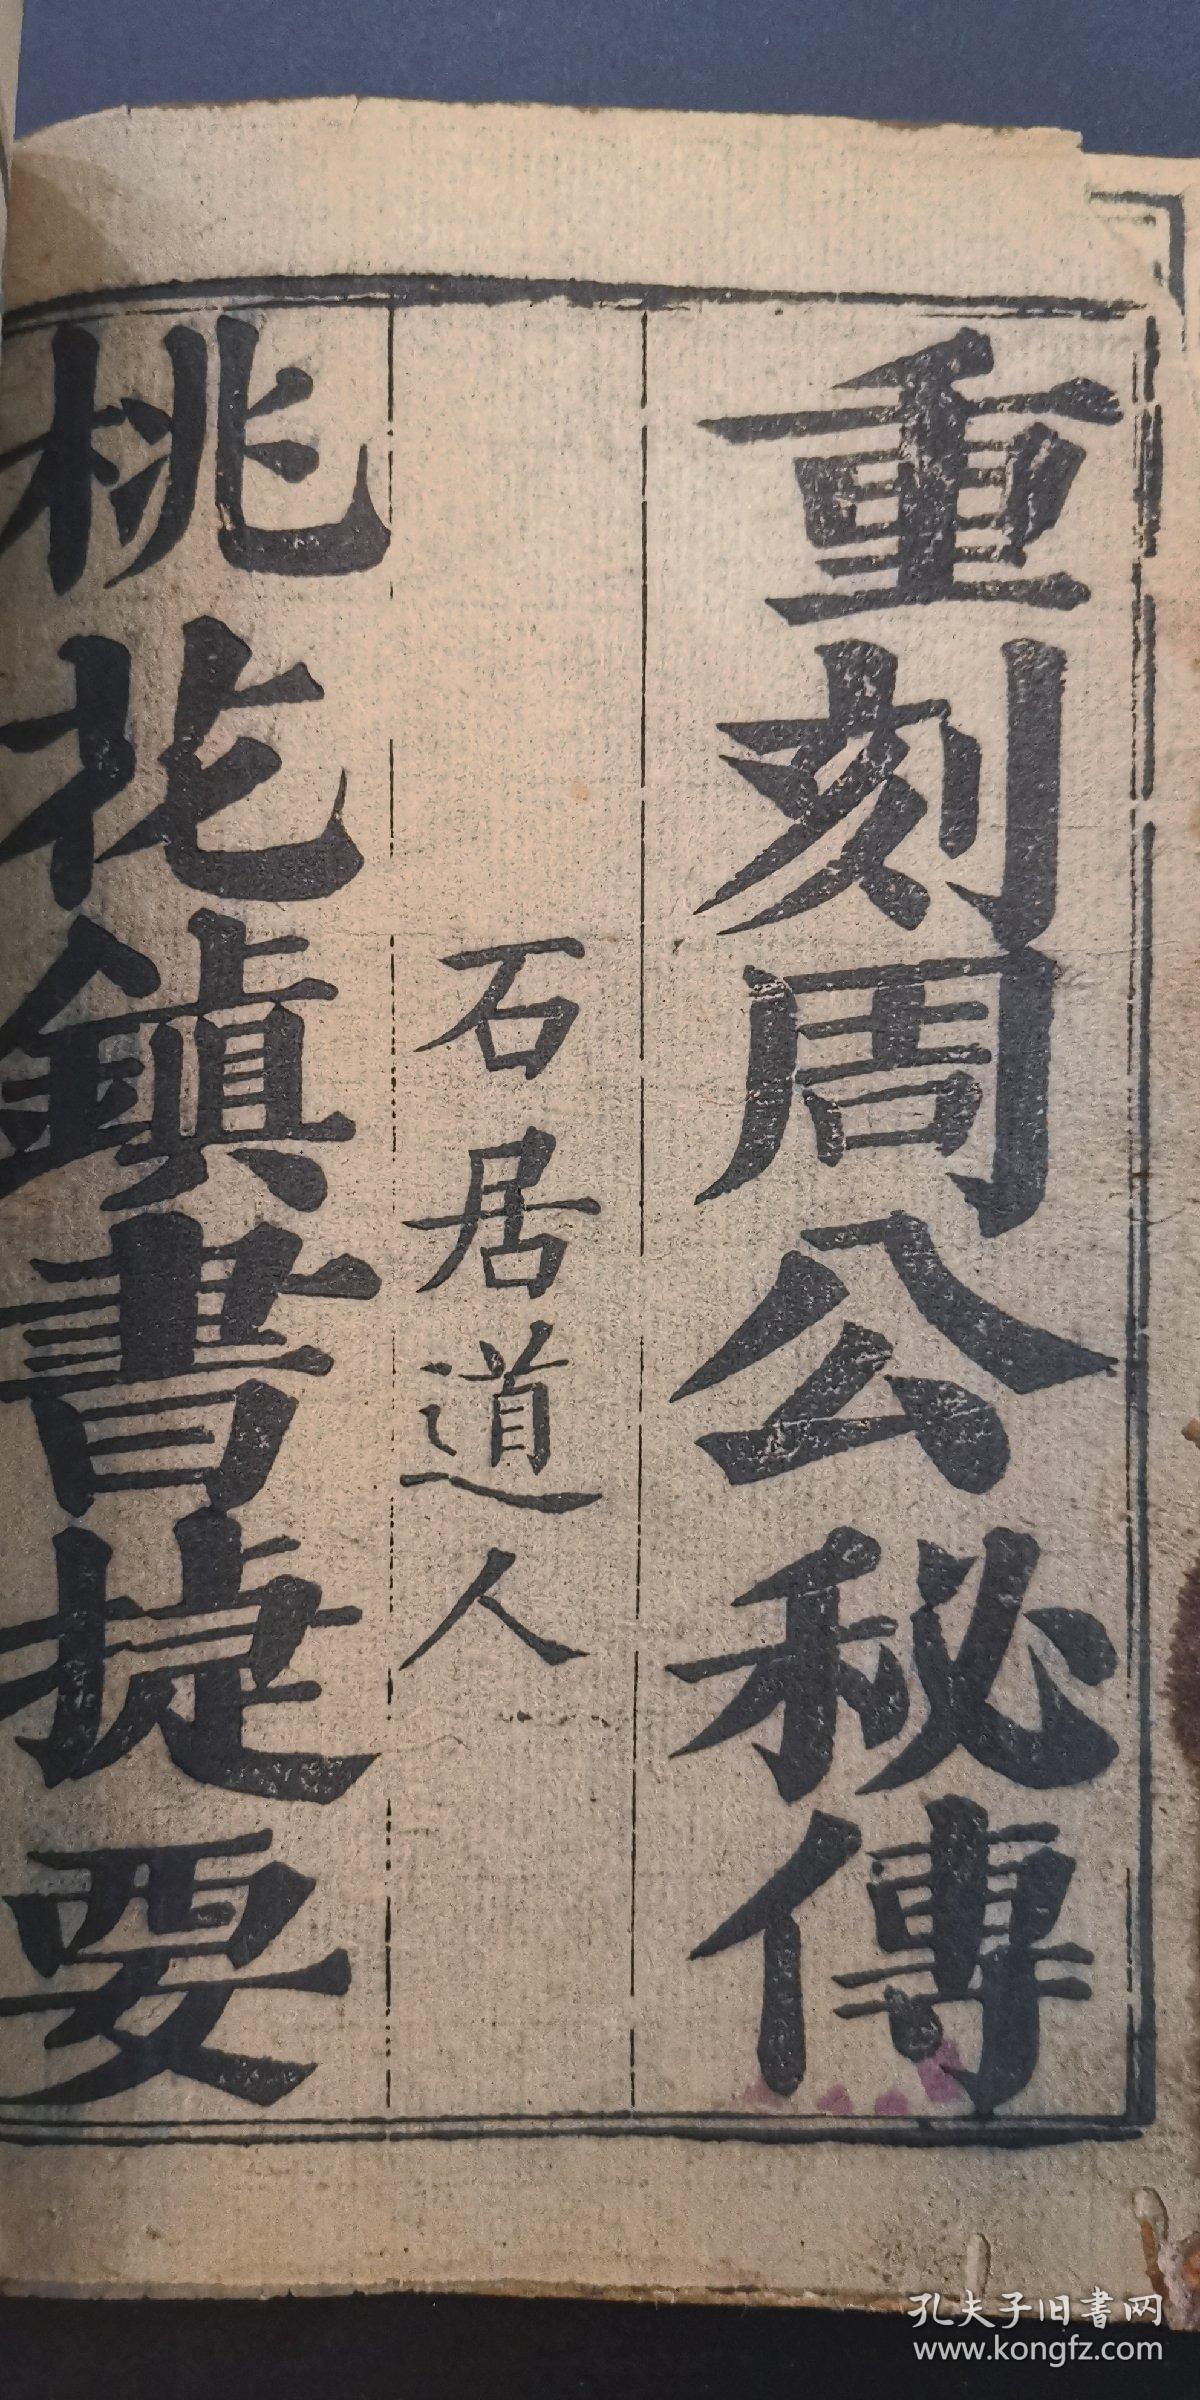 重刻周公秘傳
石居道人
桃花鎮書捷要
孔夫子旧書网
www.kongfz.com